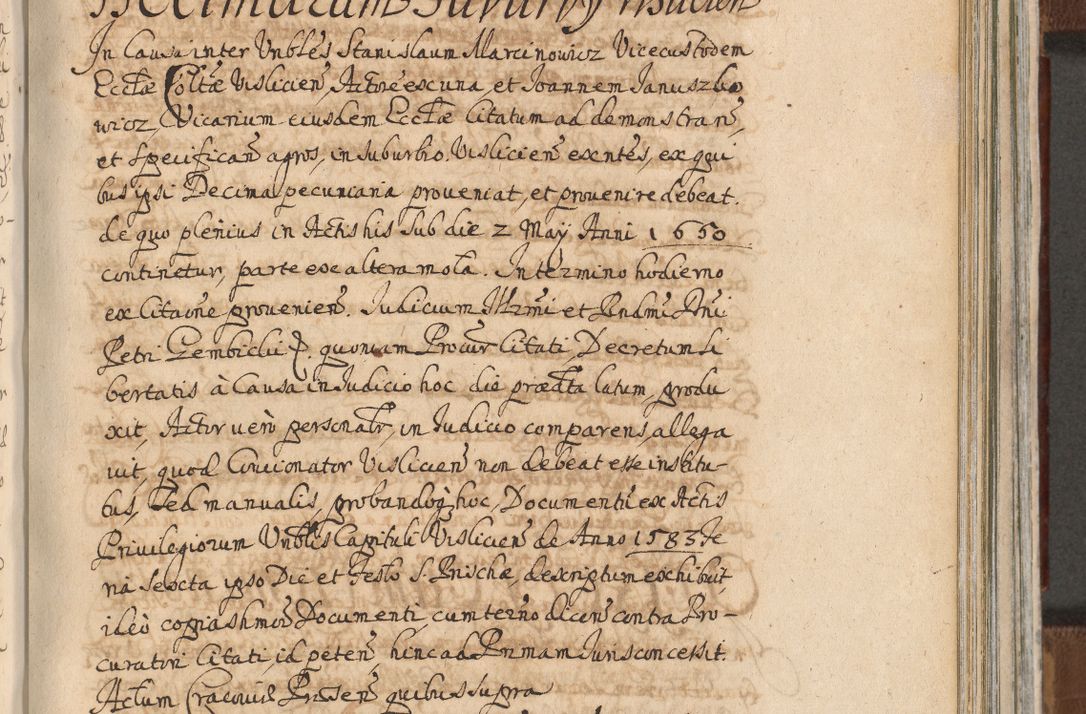 In Causa inter Vnbles Stanislaum Marcinowicz Vicecustodem
Eccłæ Colłtæ Visliciens, Actore ex una, et Joannem Januszko
wicz, Vicarium eiusdem Eccłæ Citatum ad demonstrans,
et specificans agros, in suburbio Visliciens exntes, ex qui
bus ipsi Decima pecuniaria proveniat, et provenire debeat.
de quo plenius in Actis his sub die 2 Maÿ Anni 1650
continetur, parte ex altera mota. In termino hodierno
ex Citaõne proveniens. Judicium Illrmi et Rndmi Dni
Petri Gembicki P. quoniam Procur Citati, Decretum li
bertatis à Causa in Judicio hoc die prædta latum, produ
xit, Actor verò personalr, in Judicio comparens, allega
vit, quod Concionator Visliciens non debeat esse institu-
tus, sed manualis, probandoq hoc, Documenti ex Actis
Privilegiorum Vnblis Capituli Visliciens de Anno 1583 Fe
ria Sexta ipso Die et Festo S. Priscæ, descriptum exhibuit,
ideò copias hmoi Documenti, cum terno dicens contra Pro-
curatori Citati id petens, hinc ad Primam Juris concessit.
Actum Cracoviæ Præsens quibus supra